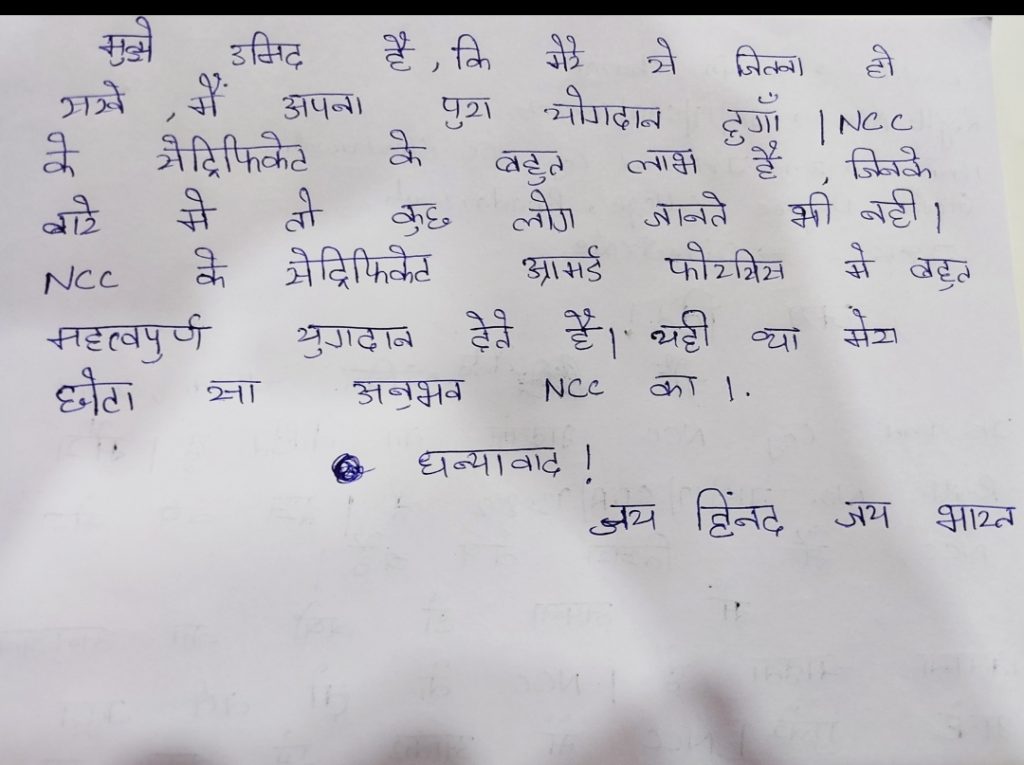 मुझे उमिद है, कि मेरे से जितना हो
सखे, मैं अपना पुरा योगदान दुगाँ । NCC
के सेट्रिफिकेट के बहुत लाभ है, जिनके
बारे मे तो कुछ लोग जानते भी नही।
NCC के सेट्रिफिकेट आ्रमर्ड फोरसिस मे बहुत
महत्वपुर्ण युगदान देते है। यही था मेरा
छोटा सा अनुभव NCC का ।.
धन्यावाद !
जय हिंनद जय भारत